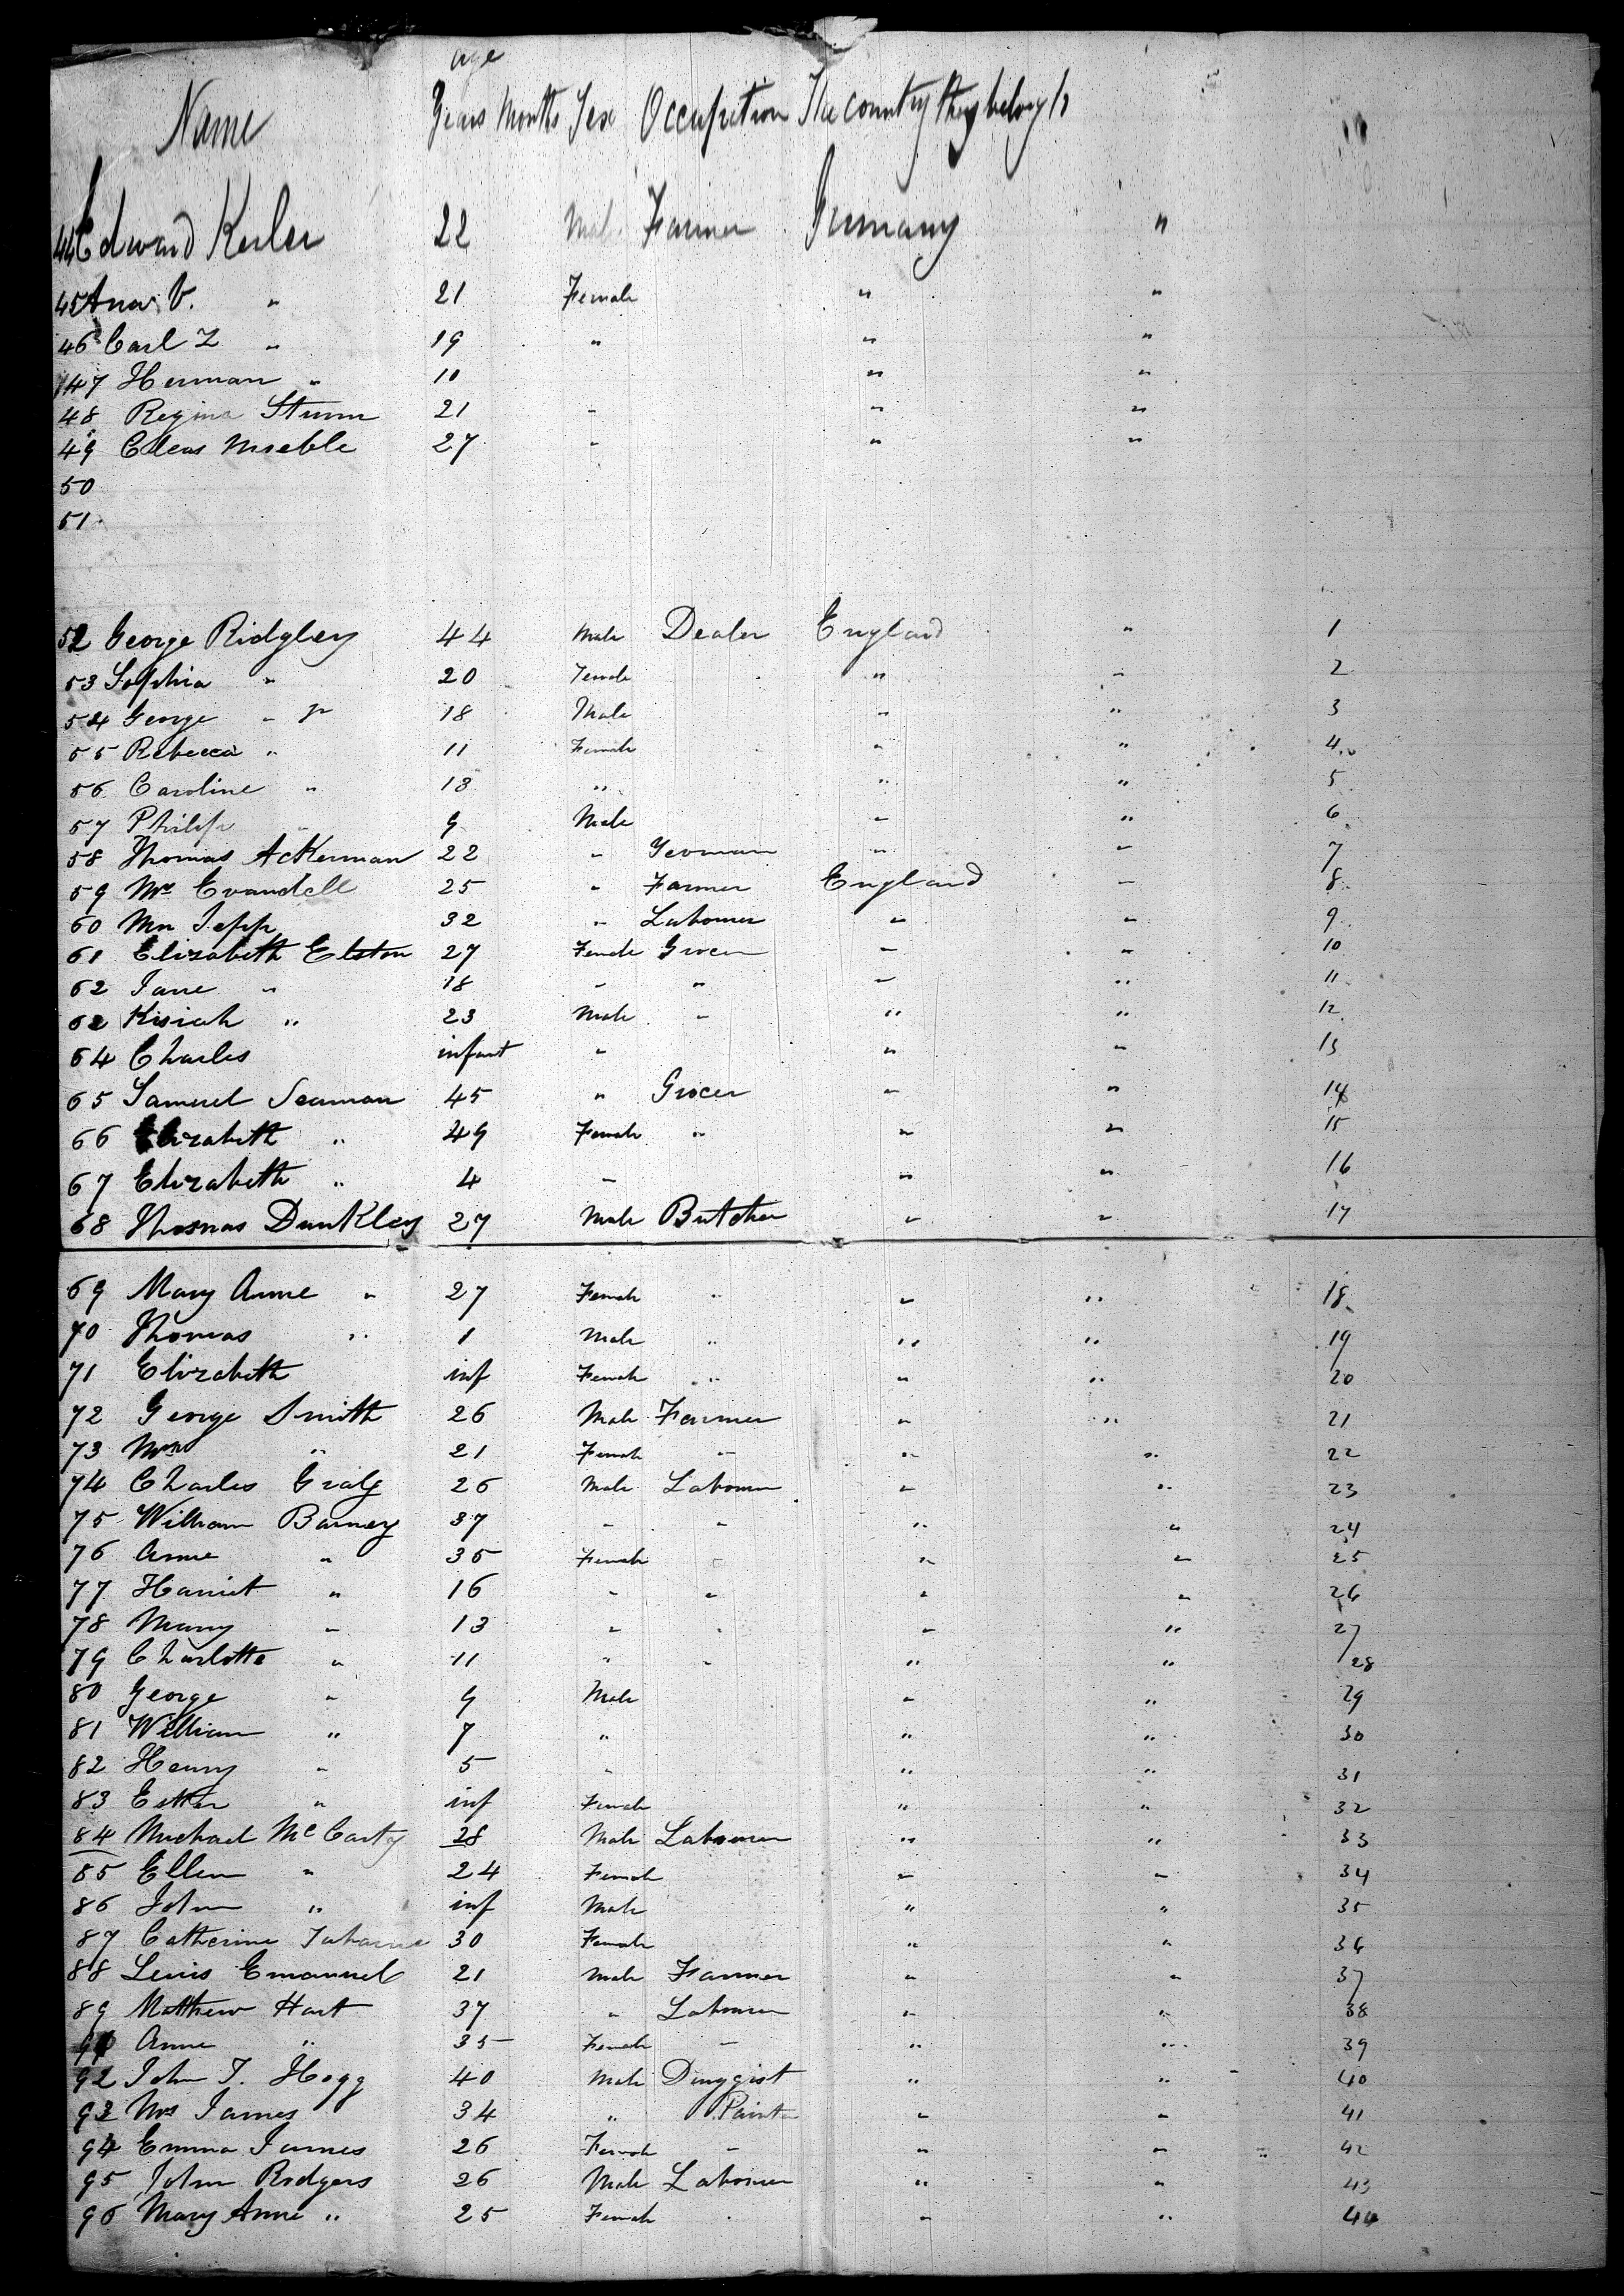 age
Name Years Months Sex Occupation The country they belong to
44 Edward Keiler 22 Male Farmer Germany "
45 Ana V. " 21 Female " "
46 Carl Z " 19 " " "
147 Herman " 10 " "
48 Regina Sturm 21 " " "
49 27 " " "
50
51
52 George Ridgley 44 Male Dealer England " 1
53 Sophia " 20 Female " " 2
54 George " Jr 18 Male " " 3
55 Rebecca " 11 Female " " 4
56 Caroline " 13 " " " 5
57 Philip " 9 Male " " 6
58 Thomas Ackerman 22 " Yeoman " " 7
59 Mr Crandell 25 " Farmer England " 8
60 Mr Jepp 32 " Labourer " " 9
61 Elizabeth Elston 27 Female Grocer " " 10
62 Jane " 18 " " " " 11
62 Kisiah " 23 Male " " " 12
64 Charles infant " " " 13
65 Samuel Seaman 45 " Grocer " " 14
66 Elizabeth " 49 Female " " " 15
67 Elizabeth " 4 " " " 16
68 Thomas Dunkley 27 Male Butcher " " 17
69 Mary Anne " 27 Female " " " 18
70 Thomas " 1 Male " " " 19
71 Elizabeth inf Female " " " 20
72 George Smith 26 Male Farmer " " 21
73 Mrs " 21 Female " " " 22
74 Charles 26 Male Labourer " " 23
75 William Barney 37 " " " " 24
76 Anne " 35 Female " " " 25
77 Harriet " 16 " " " " 26
78 Mary " 13 " " " " 27
79 Charlotte " 11 " " " " 28
80 George " 9 Male " " 29
81 William " 7 " " " 30
82 Henry " 5 " " " 31
83 Esther " inf Female " " 32
84 Michael McCarty 28 Male Labourer " " 33
85 Ellen " 24 Female " " 34
86 John " inf Male " " 35
87 Catherine 30 Female " " 36
88 Lewis Emanuel 21 Male Farmer " " 37
89 Matthew Hart 37 " Labourer " " 38
91 Anne " 35 Female " " " 39
92 John T. Hogg 40 Male Druggist " " 40
93 Mr James 34 " Painter " " 41
94 Emma James 26 Female " " " 42
95 John Rodgers 26 Male Labourer " " 43
96 Mary Anne " 25 Female " " 44